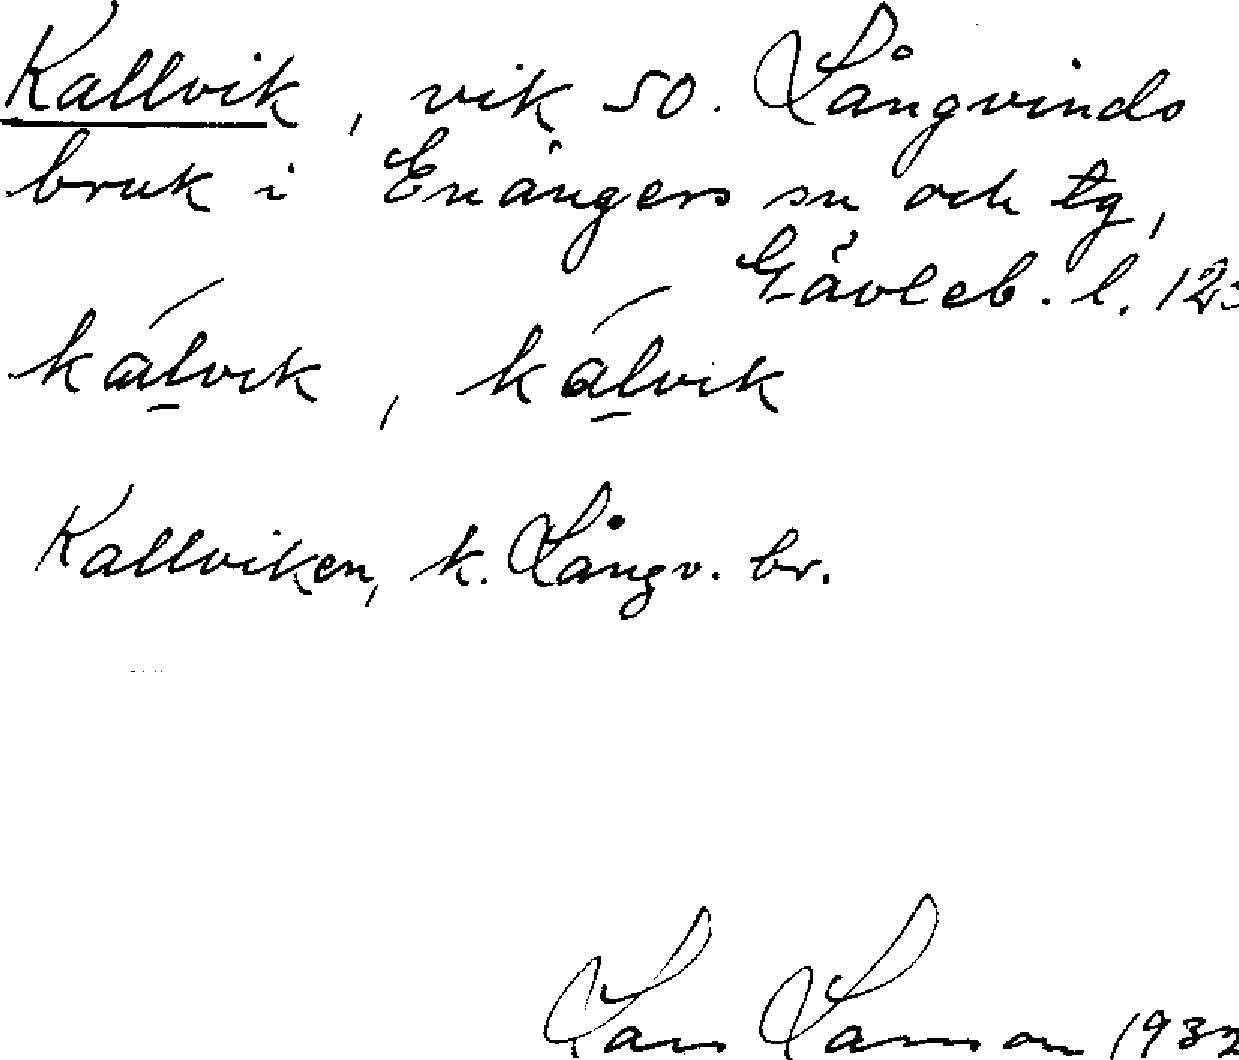 Kallvik, vik SO. Långvinds
bruk i Enångers sn och tg,
Gävleb. l.
kálvik, kálvik
Kallviken, k. Långv. br.
Lars Larsson 1932